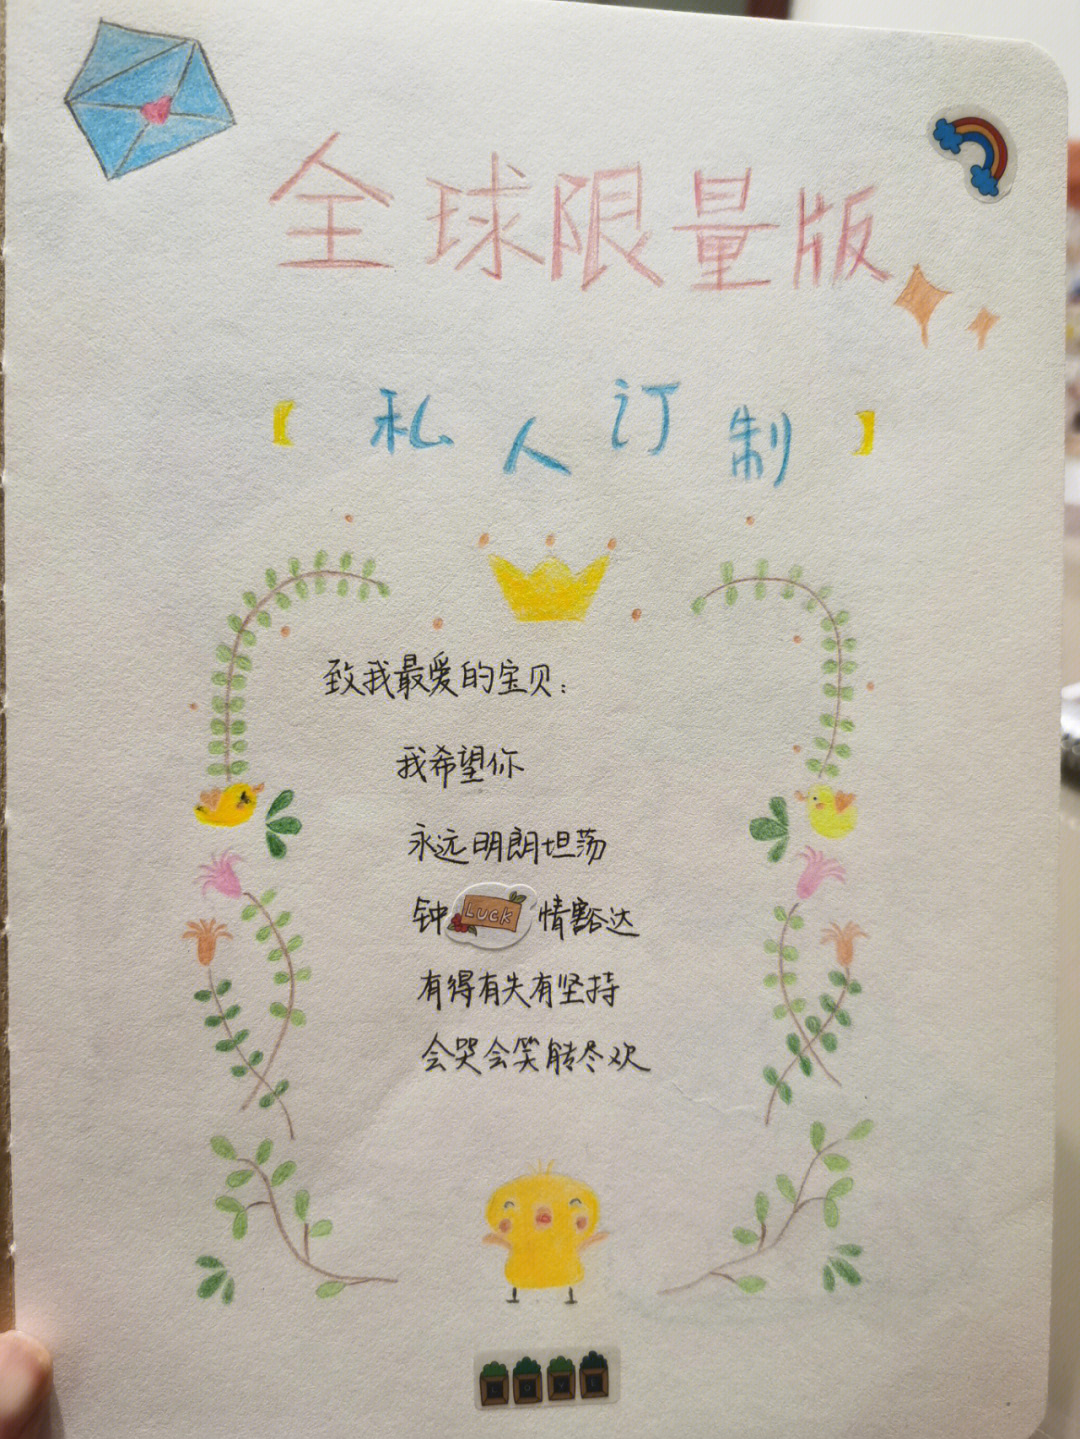 全球限量版
【私人订制】
致我最爱的宝贝：
我希望你
永远明朗坦荡
钟LUCK情豁达
有得有失有坚持
会哭会笑能尽欢
LOVE